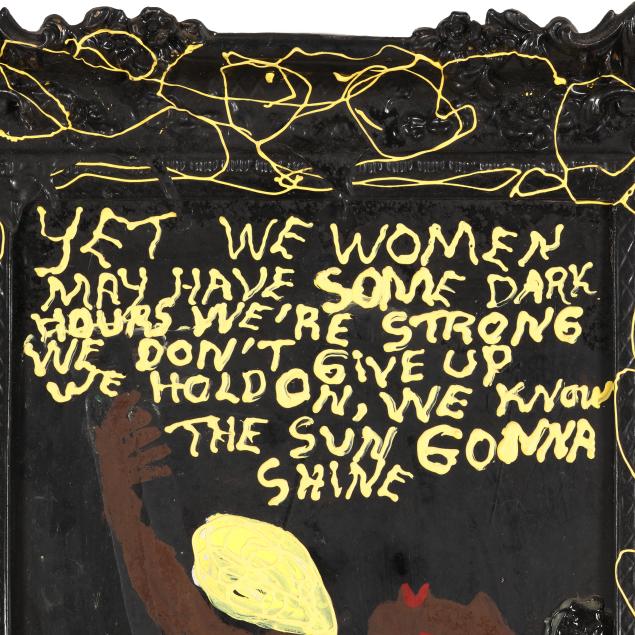 YET WE WOMEN
MAY HAVE SOME DARK
HOURS WE'RE STRONG
WE DON'T GIVE UP
WE HOLD ON, WE KNOW
THE SUN GONNA
SHINE